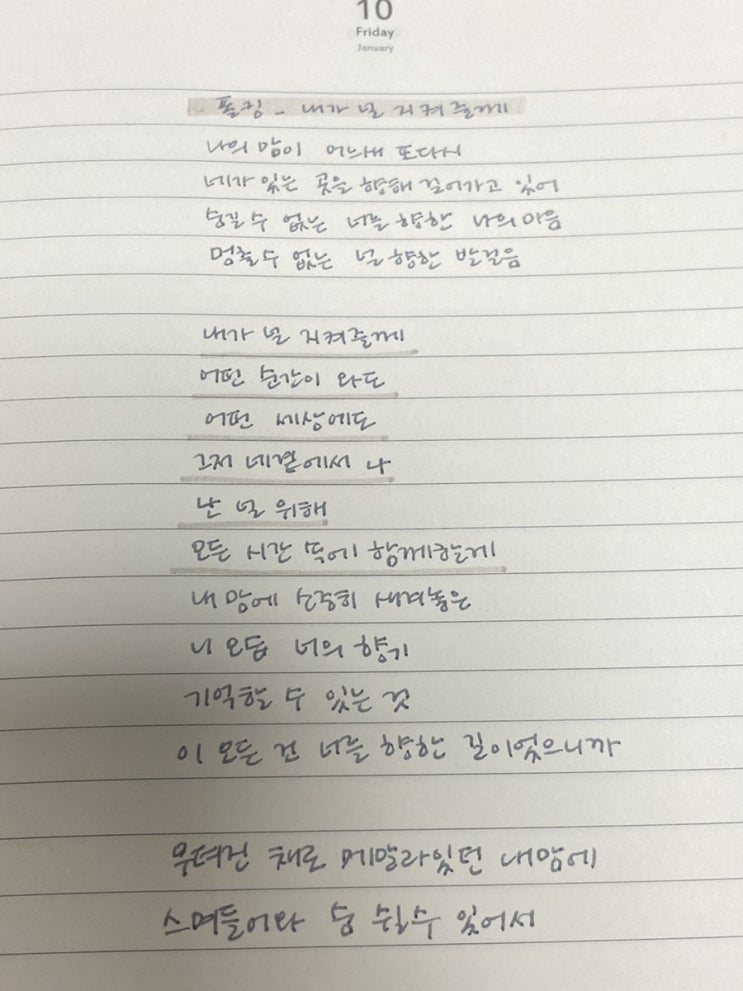 10
Friday
January
폴킴 - 내가 널 지켜줄께
나의 맘이 어느새 또다시
네가 있는 곳을 향해 걸어가고 있어
숨길 수 없는 너를 향한 나의 마음
멈출수 없는 널 향한 발걸음
내가 널 지켜줄께
어떤 순간이 와도
어떤 세상에도
그저 네곁에서 나
난 널 위해
모든 시간 속에 함께할게
내 맘에 소중히 새겨놓은
니 모습 너의 향기
기억할 수 있는 것
이 모든 건 너를 향한 길이었으니까
무뎌진 채로 메말라있던 내맘에
스며들어와 숨 쉴수 있어서